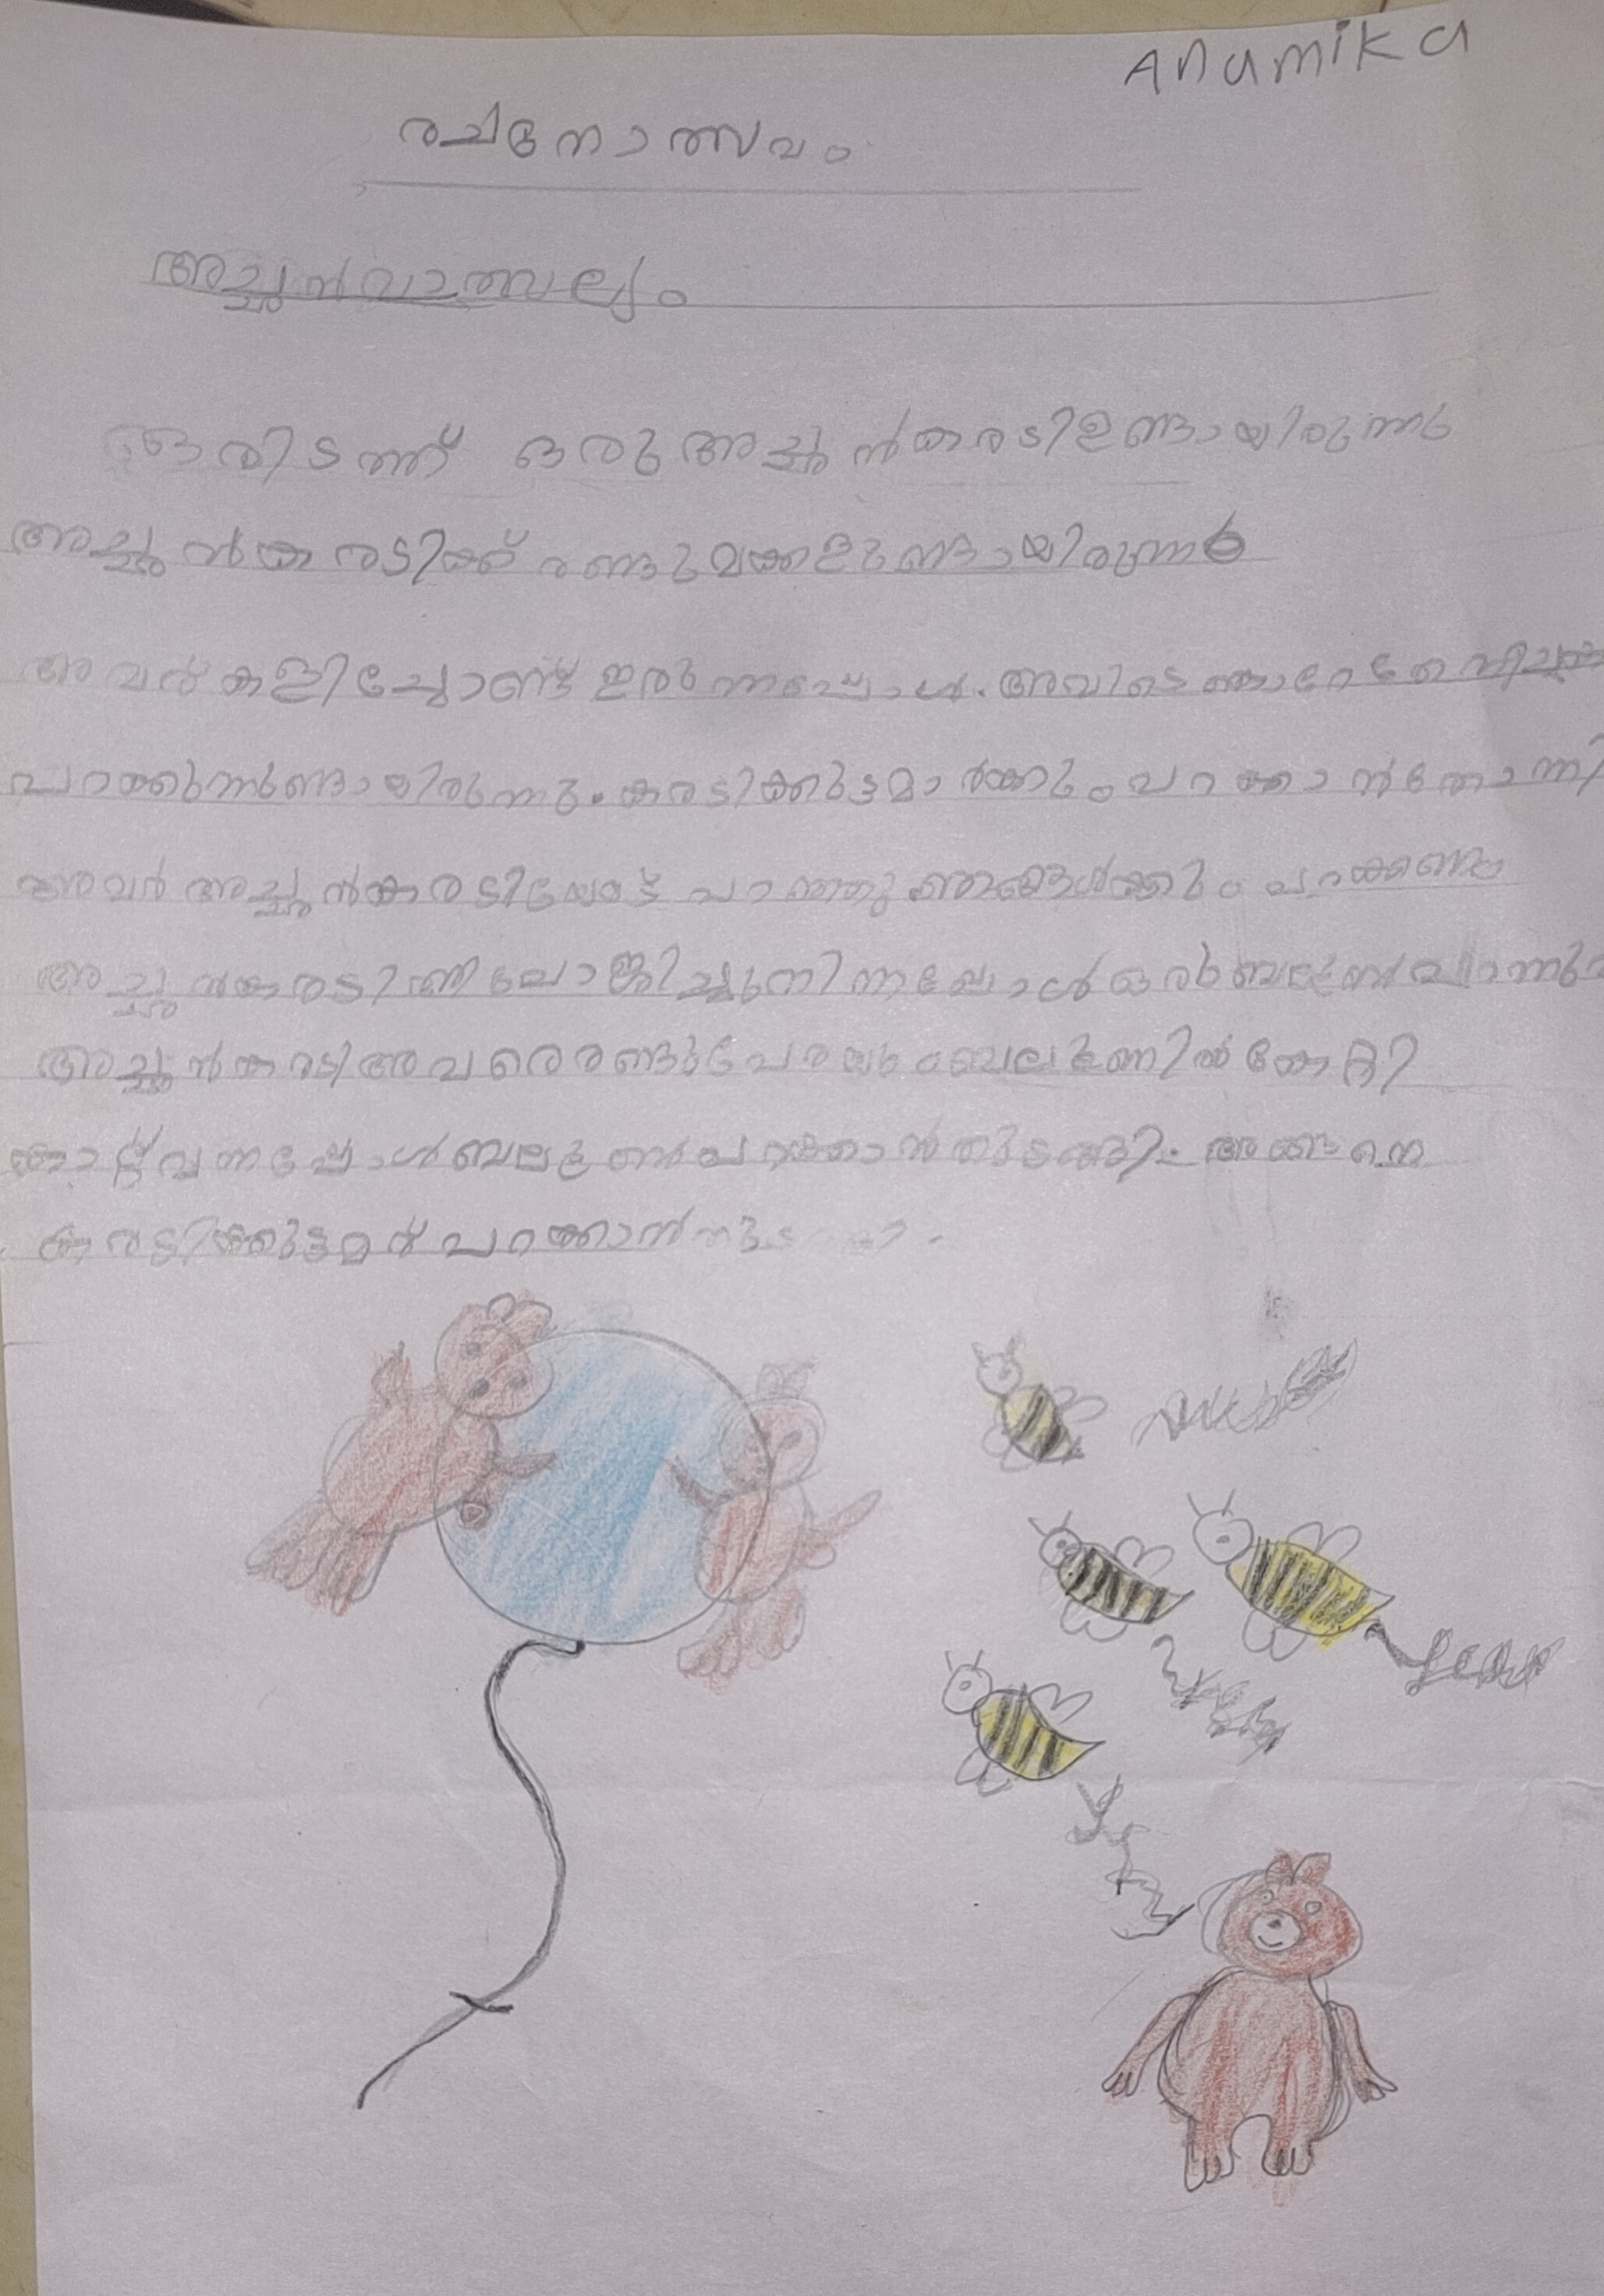 Anamika
രചനോത്സവം
അച്ചൻവാത്സല്യം
ഒരിടത്ത് ഒരു അച്ചൻകരടി ഉണ്ടായിരുന്നു
അച്ചൻകരടിക്ക് രണ്ടുമക്കളുണ്ടായിരുന്നു
അവർ കളിച്ചോണ്ട് ഇരുന്നപ്പോൾ. അവിടെ
പറക്കുന്നുണ്ടായിരുന്നു. കരടിക്കുട്ടമാർക്കും പറക്കാൻതോന്നി
അവർ അച്ചൻകരടിയോട് പറഞ്ഞു ഞങ്ങൾക്കും പറക്കണം
അച്ചൻകരടി ആലോജിച്ചുനിന്നപ്പോൾ ഒരു ബലൂൺ വന്നു
അച്ചൻകരടി അവരെ രണ്ടുപേരയും ബലൂണിൽ കേറ്റി
കാറ്റ് വന്നപ്പോൾ ബലൂൺ പറക്കാൻ തുടങ്ങി. അങ്ങനെ
കരടിക്കുട്ടമർ പറക്കാൻ